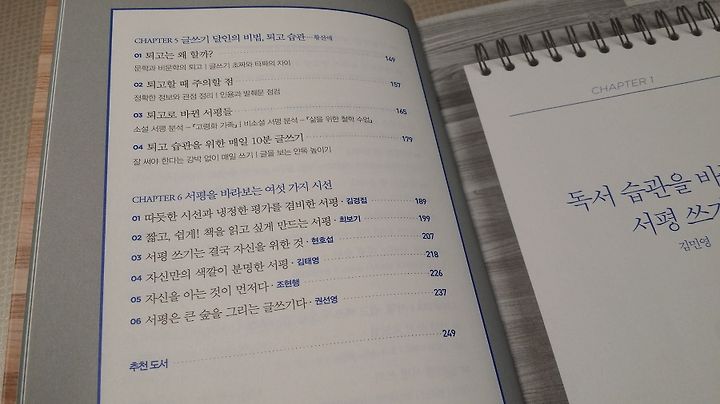 CHAPTER 5 글쓰기 달인의 비법, 퇴고 습관 - 황선애
01 퇴고는 왜 할까? 149
문학과 비문학의 퇴고 | 글쓰기 초짜와 타짜의 차이
02 퇴고할 때 주의할 점 157
정확한 정보와 관점 정리 | 인용과 발췌문 점검
03 퇴고로 바뀐 서평들 165
소설 서평 분석 - 『고령화 가족』 | 비소설 서평 분석 - 『삶을 위한 철학 수업』
04 퇴고 습관을 위한 매일 10분 글쓰기 179
잘 써야 한다는 강박 없이 매일 쓰기 | 글을 보는 안목 높이기
CHAPTER 6 서평을 바라보는 여섯 가지 시선
01 따듯한 시선과 냉정한 평가를 겸비한 서평 · 김경집 189
02 짧고, 쉽게! 책을 읽고 싶게 만드는 서평 · 최보기 199
03 서평 쓰기는 결국 자신을 위한 것 · 현호섭 207
04 자신만의 색깔이 분명한 서평 · 김태영 218
05 자신을 아는 것이 먼저다 · 조현행 226
06 서평은 큰 숲을 그리는 글쓰기다 · 권선영 237
추천 도서 249
CHAPTER 1
독서 습관을
서평 쓰기
김민영